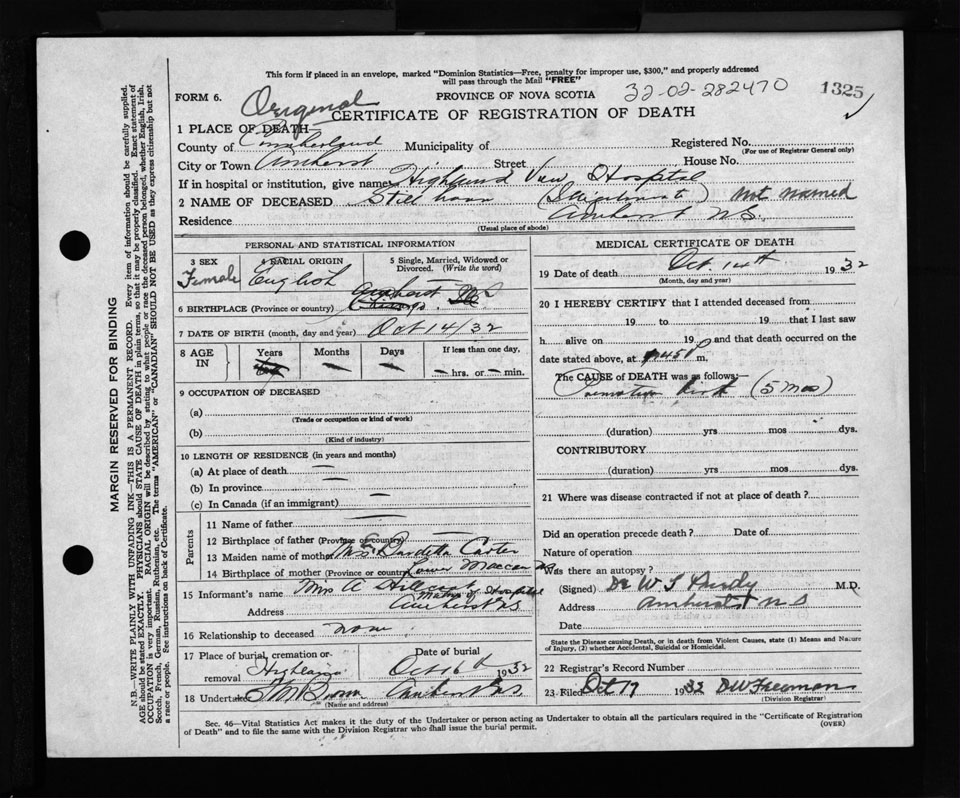 This form if placed in an envelope, marked "Dominion Statistics—Free, penalty for improper use, $300," and properly addressed
will pass through the Mail "FREE"
FORM 6. PROVINCE OF NOVA SCOTIA 32-02-282470 1325
Original CERTIFICATE OF REGISTRATION OF DEATH
1 PLACE OF DEATH
County of Cumberland Municipality of Registered No.
(For use of Registrar General only)
City or Town Amherst Street House No.
If in hospital or institution, give name Highland View Hospital
2 NAME OF DECEASED Still born not named
Residence Amherst N.S.
(Usual place of abode)
PERSONAL AND STATISTICAL INFORMATION
3 SEX 4 RACIAL ORIGIN 5 Single, Married, Widowed or
Divorced. (Write the word)
Female English
Amherst NS
6 BIRTHPLACE (Province or country)
7 DATE OF BIRTH (month, day and year) Oct 14/32
8 AGE IN Years Months Days If less than one day,
— — — hrs. or — min.
9 OCCUPATION OF DECEASED
(a)
(Trade or occupation or kind of work)
(b)
(Kind of industry)
10 LENGTH OF RESIDENCE (in years and months)
(a) At place of death —
(b) In province —
(c) In Canada (if an immigrant) —
Parents
11 Name of father —
12 Birthplace of father (Province or country) —
13 Maiden name of mother Carter
14 Birthplace of mother (Province or country) Lower Maccan NS
15 Informant's name Miss A
Matron of Hospital
Address Amherst NS
16 Relationship to deceased none
17 Place of burial, cremation or removal Date of burial
Highland Oct 16th 1932
18 Undertaker Brown Amherst NS
(Name and address)
MEDICAL CERTIFICATE OF DEATH
19 Date of death Oct. 14th 1932
(Month, day and year)
20 I HEREBY CERTIFY that I attended deceased from
19 to 19 that I last saw
h alive on 19 and that death occurred on the
date stated above, at 45 P m.
The CAUSE of DEATH was as follows:—
Premature birth (5 mos)
(duration) yrs mos dys.
CONTRIBUTORY
(duration) yrs mos dys.
21 Where was disease contracted if not at place of death?
Did an operation precede death? Date of
Nature of operation
Was there an autopsy?
(Signed) Dr W T Purdy M.D.
Address Amherst N S
Date
State the Disease causing Death, or in death from Violent Causes, state (1) Means and Nature
of Injury, (2) whether Accidental, Suicidal or Homicidal.
22 Registrar's Record Number
23 Filed Oct 17 1932 DW Freeman
(Division Registrar)
Sec. 46—Vital Statistics Act makes it the duty of the Undertaker or person acting as Undertaker to obtain all the particulars required in the "Certificate of Registration
of Death" and to file the same with the Division Registrar who shall issue the burial permit. (OVER)
MARGIN RESERVED FOR BINDING
N.B.—WRITE PLAINLY WITH UNFADING INK—THIS IS A PERMANENT RECORD. Every item of information should be carefully supplied.
AGE should be stated EXACTLY. PHYSICIANS should STATE CAUSE OF DEATH in plain terms, so that it may be properly classified. Exact statement of
OCCUPATION is very important. RACIAL ORIGIN will be described by stating to what people or race the deceased person belonged, whether English, Irish,
Scotch, French, German, Russian, Ruthenian, etc. The terms "AMERICAN" or "CANADIAN" SHOULD NOT BE USED as they express citizenship but not
a race or people. See instructions on back of Certificate.